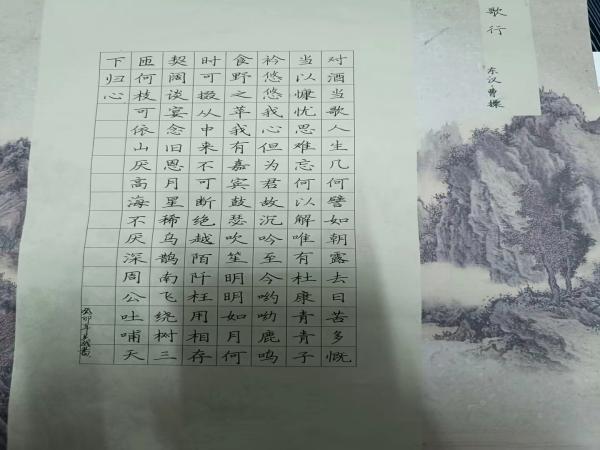 歌行
东汉曹操
对酒当歌人生几何譬如朝露去日苦多慨
当以慷忧思难忘何以解唯有杜康青青子
衿悠悠我心但为君故沉吟至今哟呦鹿鸣
食野之苹我有嘉宾鼓瑟吹笙明明如月何
时可掇从中来不可断绝越陌阡枉用相存
契阔谈宴念旧恩月星稀乌鹊南飞绕树三
匝何枝可依山厌高海不厌深周公吐哺天
下归心
癸卯年